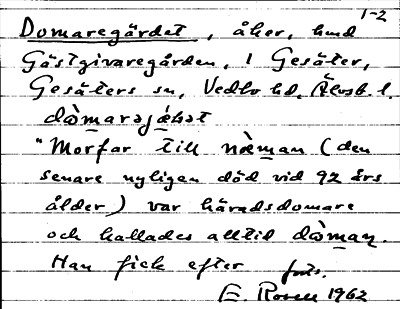 1-2
Domaregärdet, åker, hmd
Gästgivaregården, 1 Gesäter,
Gesäters sn, Vedbo hd, Älvsb. l.
dòmarəjǽʈət
"Morfar till næ̀man (den
senare nyligen död vid 92 års
ålder) var häradsdomare
och kallades alltid dòman.
Han fick efter forts.
E. Rosell 1962